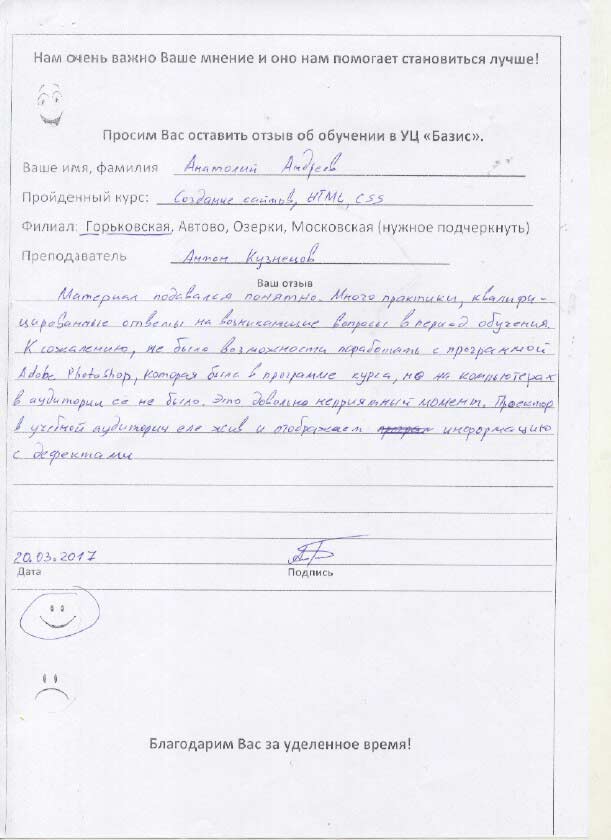 Нам очень важно Ваше мнение и оно нам помогает становиться лучше!
Просим Вас оставить отзыв об обучении в УЦ «Базис».
Ваше имя, фамилия Анатолий Андреев
Пройденный курс: Создание сайтов, HTML, CSS
Филиал: Горьковская, Автово, Озерки, Московская (нужное подчеркнуть)
Преподаватель Антон Кузнецов
Ваш отзыв
Материал подавался понятно. Много практики, квалифи-
цированные ответы на возникающие вопросы в период обучения.
К сожалению, не было возможности поработать с программой
Adobe Photoshop, которая была в программе курса, но на компьютерах
в аудитории ее не было. Это довольно неприятный момент. Проектор
в учебной аудитории еле жив и отображает информацию
с дефектами
20.03.2017
Дата Подпись
Благодарим Вас за уделенное время!